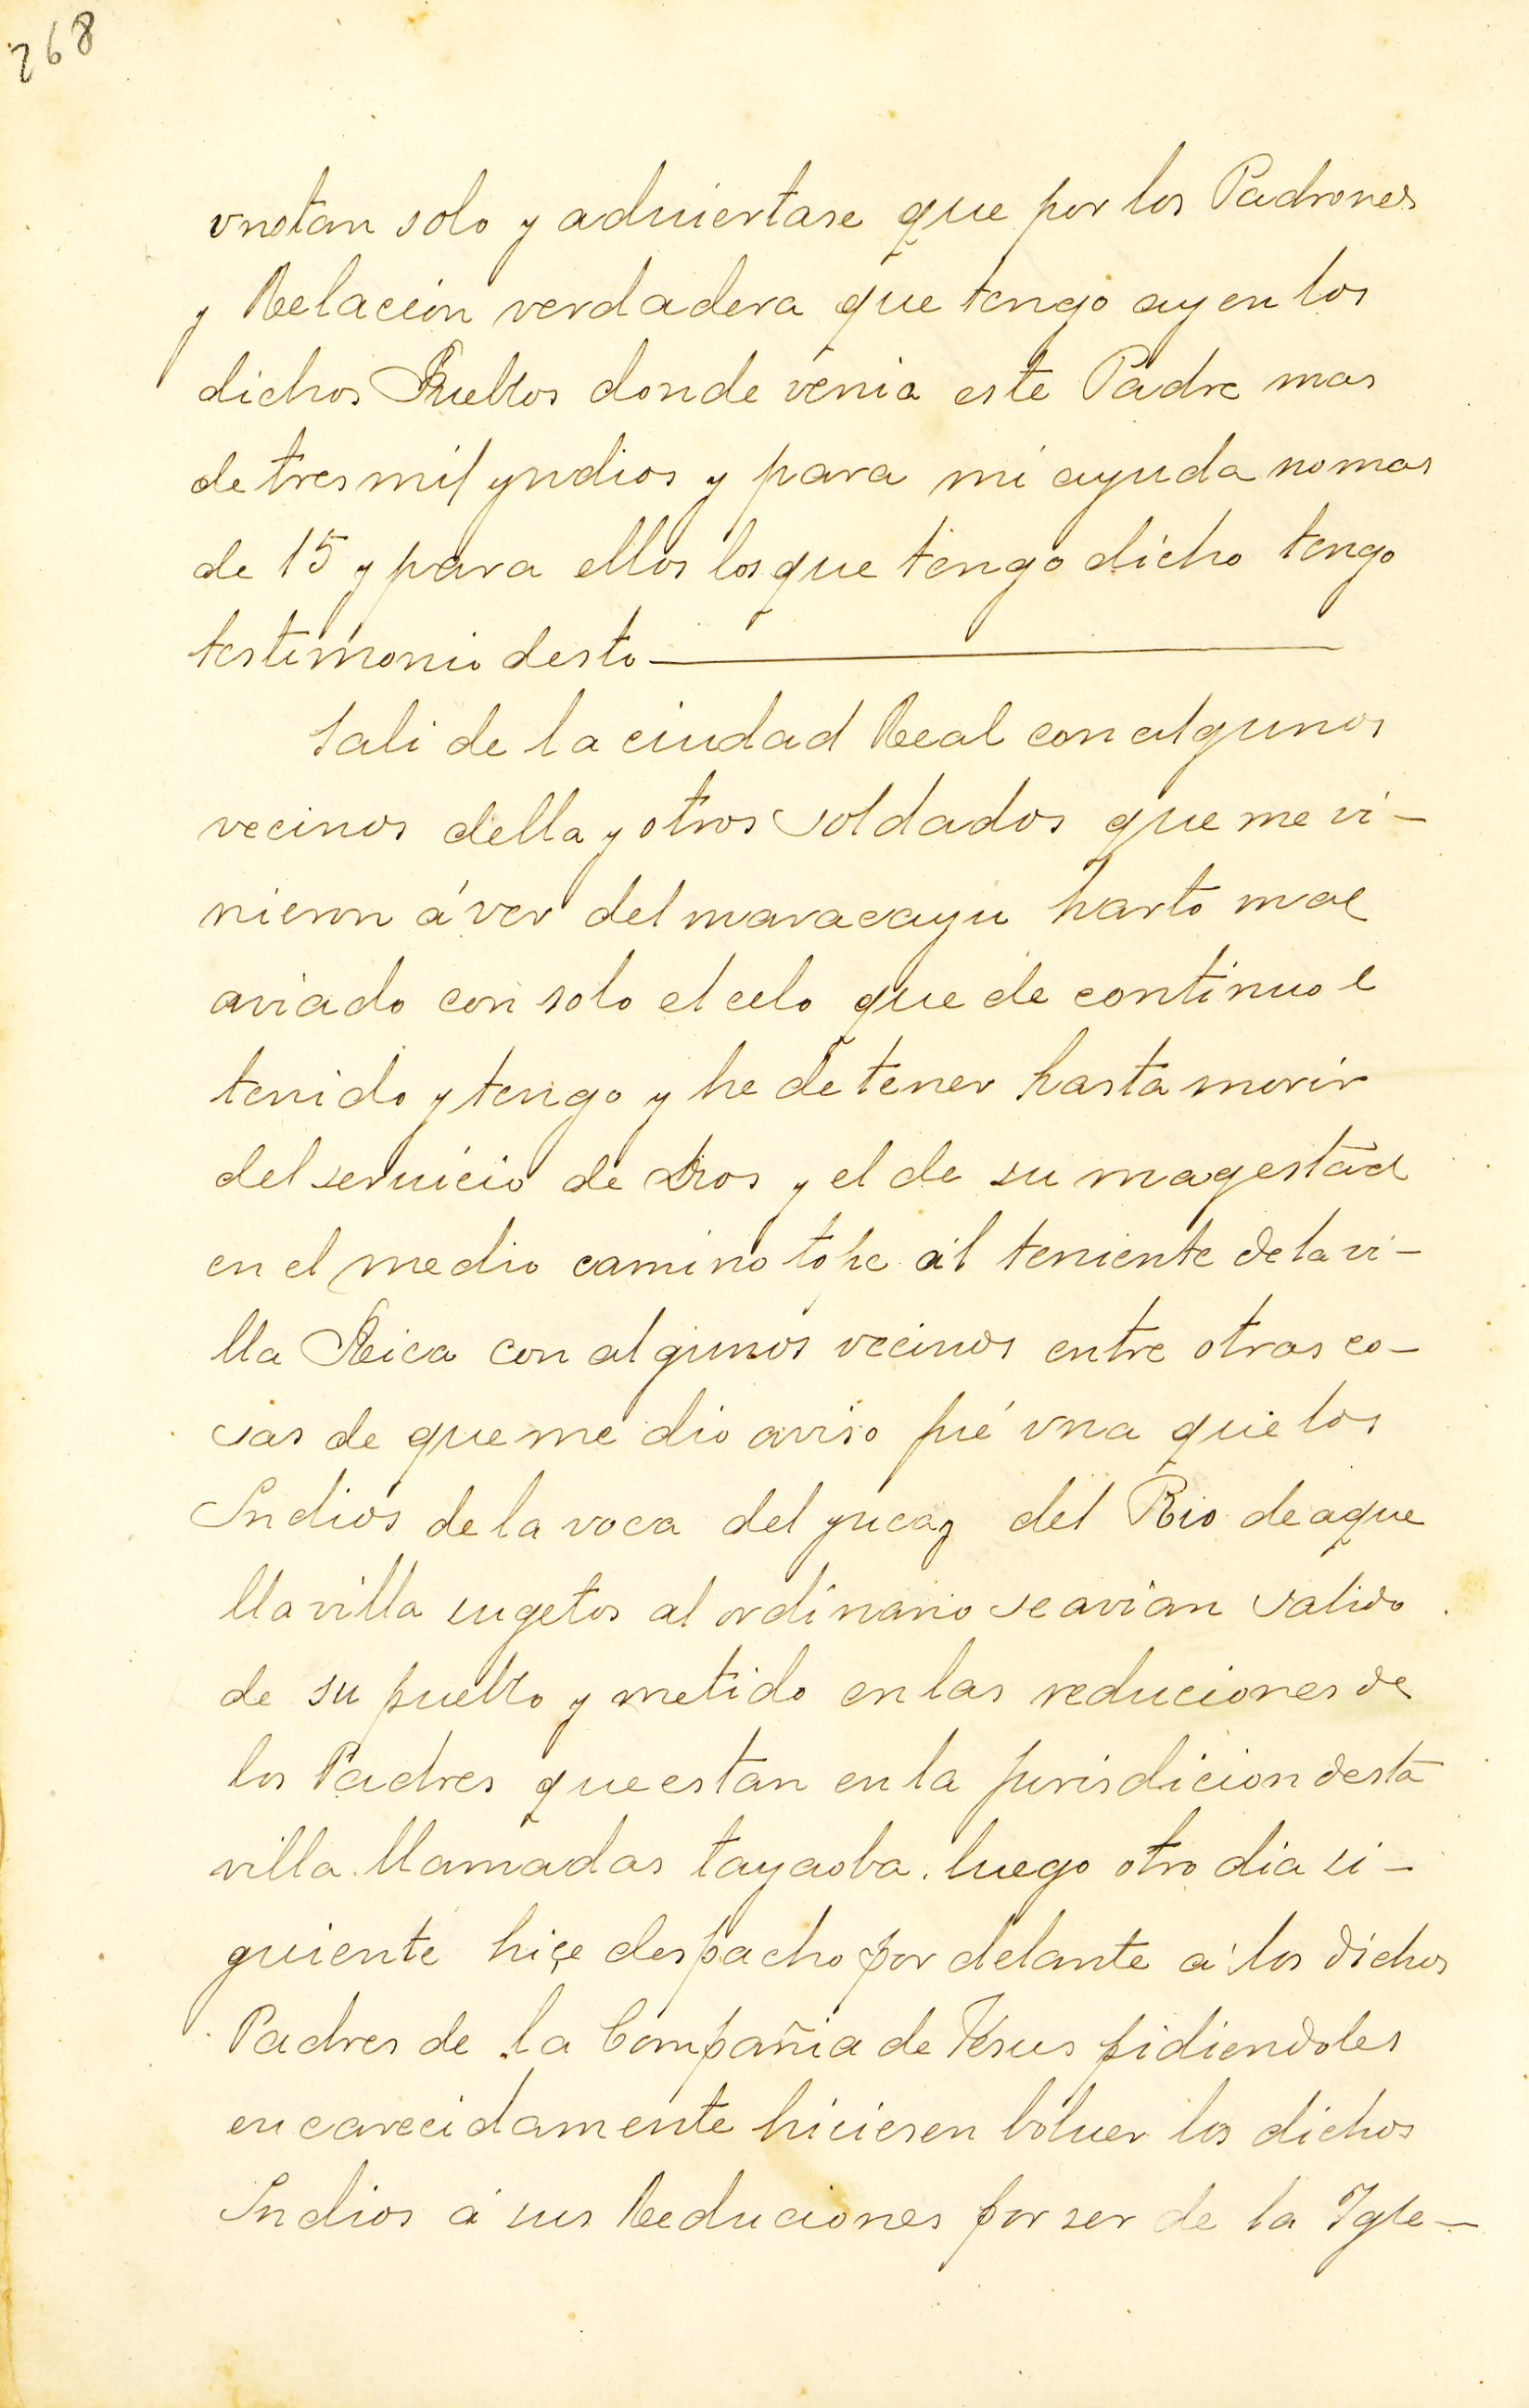 268
vnotan solo y aduiertase que por los Padrones
y Relacion verdadera que tengo ay en los
dichos Pueblos donde venia este Padre mas
de tres mil yndios y para mi ayuda no mas
de 15 y para ellos los que tengo dicho tengo
testimonio desto
Sali de la ciudad Real con algunos
vecinos della y otros soldados que me vi-
nieron á ver del maracayu harto mal
aviado con solo el celo que de continuo e
tenido y tengo y he de tener hasta morir
del seruicio de Dios y el de su magestad
en el medio camino tope al teniente de la vi-
lla Rica con algunos vecinos entre otras co-
sas de que me dio aviso fué vna que los
Indios de la voca del yucay del Rio de aque
lla villa sugetos al ordinario se avian salido
de su pueblo y metido en las reduciones de
los Padres que estan en la jurisdicion desta
villa llamadas tayaoba. luego otro dia si-
guiente hiçe despacho por delante á los dichos
Padres de la Compañia de Jesus pidiendoles
encarecidamente hiciesen boluer los dichos
Indios á sus Reduciones por ser de la Igle-